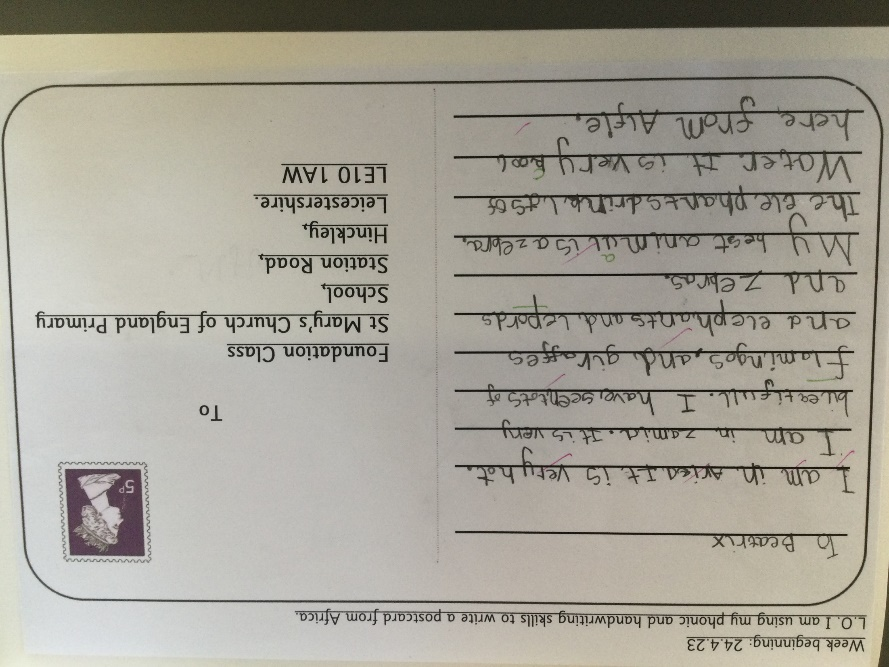 Week beginning: 24.4.23
L.O. I am using my phonic and handwriting skills to write a postcard from Africa.
To Beatrix
I am in Africa It is very hot.
I am in zamia. It is very
bueatifull. I have seen lots of
flamingos, and giraffes
and elephants and Lepords
and zebras.
My best animul is a zebra.
The elephants drink lots of
Water. It is very
here, from Alfie.
5P
To
Foundation Class
St Mary's Church of England Primary
School,
Station Road,
Hinckley,
Leicestershire.
LE10 1AW